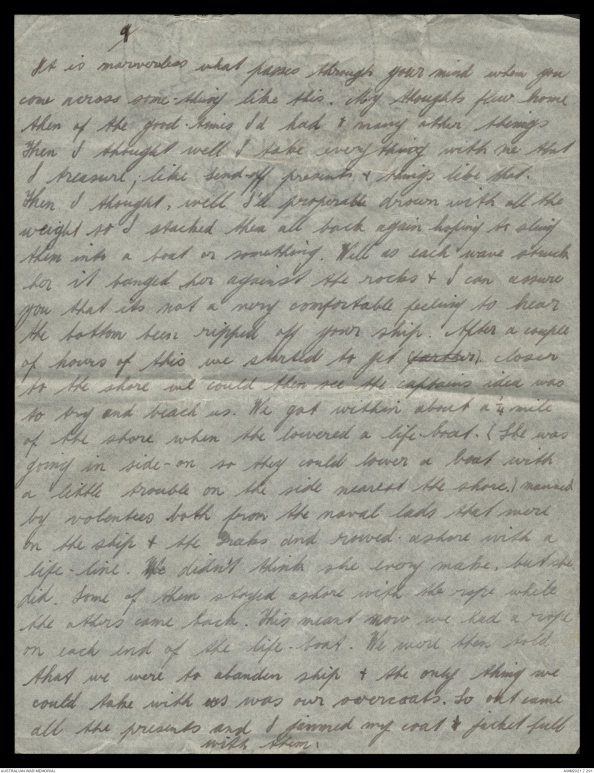 9
It is marverless what passes through your mind when you
come across some-thing like this. My thoughts flew home
then of the good-times I'd had & many other things
Then I thought well I take everything with me that
I treasure, like send-off presents & things like that.
Then I thought, well I'd properable drown with all the
weight so I stacked them all back again hoping to sling
them into a boat or something. Well as each wave struck
her it banged her against the rocks & I can assure
you that its not a very comfortable feeling to hear
the bottom been ripped off your ship. After a couple
of hours of this we started to get closer
to the shore we could then see the captains idea was
to try and beach us. We got within about a ¼ mile
of the shore when the lowered a life-boat. (She was
going in side-on so they could lower a boat with
a little trouble on the side nearest the shore.) manned
by volentees both from the naval lads that were
on the ship & the and rowed ashore with a
life-line. We didn't think she every make, but she
did. Some of them stayed ashore with the rope while
the others came back. This meant now we had a rope
on each end of the life-boat. We were then told
that we were to abanden ship & the only thing we
could take with us was our overcoats. So out came
all the presents and I jammed my coat & jacket full
with them.
AUSTRALIAN WAR MEMORIAL